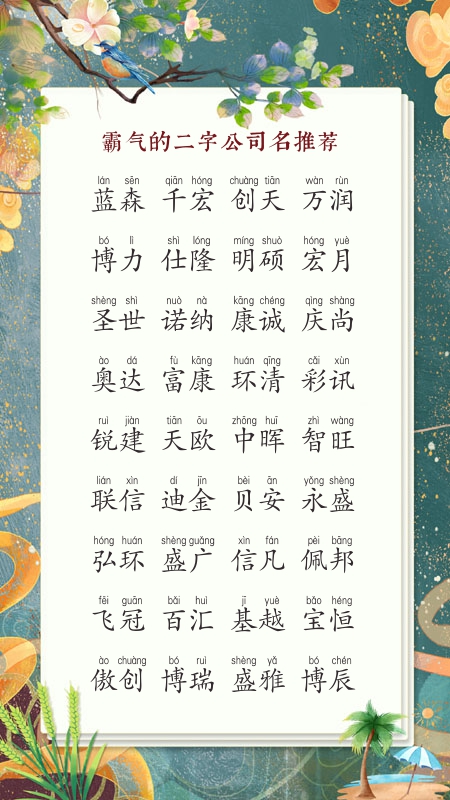 霸气的二字公司名推荐
lán sēn qiān hóng chuàng tiān wàn rùn
蓝森 千宏 创天 万润
bó lì shì lóng míng shuò hóng yuè
博力 仕隆 明硕 宏月
shèng shì nuò nà kāng chéng qìng shàng
圣世 诺纳 康诚 庆尚
ào dá fù kāng huán qīng cǎi xùn
奥达 富康 环清 彩讯
ruì jiàn tiān ōu zhōng huī zhì wàng
锐建 天欧 中晖 智旺
lián xìn dí jīn bèi ān yǒng shèng
联信 迪金 贝安 永盛
hóng huán shèng guǎng xìn fán pèi bāng
弘环 盛广 信凡 佩邦
fēi guān bǎi huì jī yuè bǎo héng
飞冠 百汇 基越 宝恒
ào chuàng bó ruì shèng yǎ bó chén
傲创 博瑞 盛雅 博辰